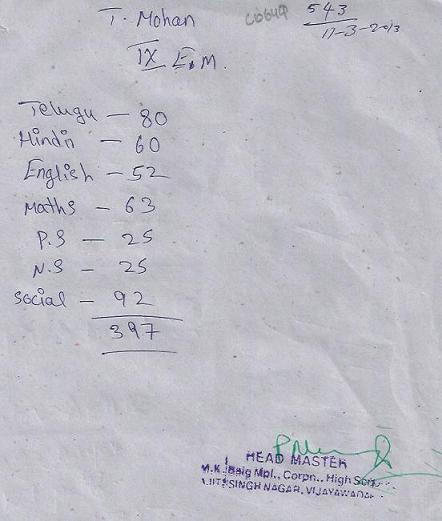 T. Mohan
543
11-3-2013
IX E.M.
Telugu - 80
Hindi - 60
English - 52
Maths - 63
P.S - 25
N.S - 25
Social - 92
397
HEAD MASTER
M.K. Baig Mpl., Corpn., High
AJITSINGH NAGAR, VIJAYAWADA